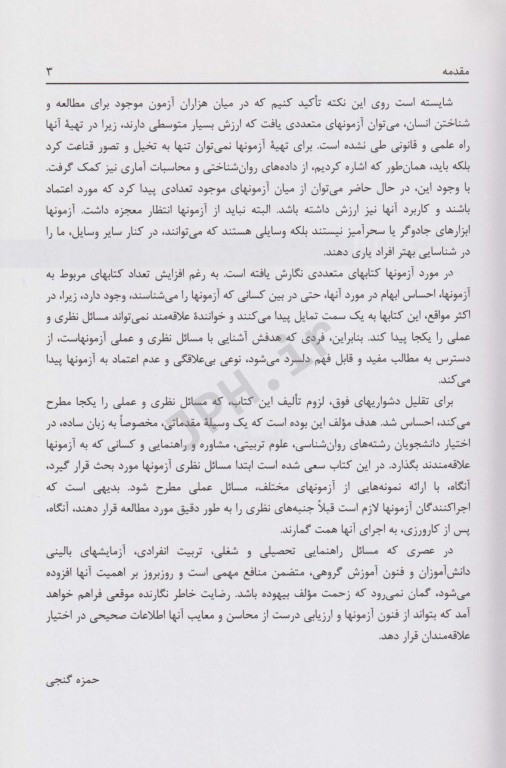 مقدمه ۳
شایسته است روی این نکته تأکید کنیم که در میان هزاران آزمون موجود برای مطالعه و
شناختن انسان، می‌توان آزمونهای متعددی یافت که ارزش بسیار متوسطی دارند، زیرا در تهیهٔ آنها
راه علمی و قانونی طی نشده است. برای تهیهٔ آزمونها نمی‌توان تنها به تخیل و تصور قناعت کرد
بلکه باید، همان‌طور که اشاره کردیم، از داده‌های روان‌شناختی و محاسبات آماری نیز کمک گرفت.
با وجود این، در حال حاضر می‌توان از میان آزمونهای موجود تعدادی پیدا کرد که مورد اعتماد
باشند و کاربرد آنها نیز ارزش داشته باشد. البته نباید از آزمونها انتظار معجزه داشت. آزمونها
ابزارهای جادوگر یا سحرآمیز نیستند بلکه وسایلی هستند که می‌توانند، در کنار سایر وسایل، ما را
در شناسایی بهتر افراد یاری دهند.
در مورد آزمونها کتابهای متعددی نگارش یافته است. به رغم افزایش تعداد کتابهای مربوط به
آزمونها، احساس ابهام در مورد آنها، حتی در بین کسانی که آزمونها را می‌شناسند، وجود دارد، زیرا، در
اکثر مواقع، این کتابها به یک سمت تمایل پیدا می‌کنند و خوانندهٔ علاقه‌مند نمی‌تواند مسائل نظری و
عملی را یکجا پیدا کند. بنابراین، فردی که هدفش آشنایی با مسائل نظری و عملی آزمونهاست، از
دسترس به مطالب مفید و قابل فهم دلسرد می‌شود، نوعی بی‌علاقگی و عدم اعتماد به آزمونها پیدا
می‌کند.
برای تقلیل دشواریهای فوق، لزوم تألیف این کتاب، که مسائل نظری و عملی را یکجا مطرح
می‌کند، احساس شد. هدف مؤلف این بوده است که یک وسیلهٔ مقدماتی، مخصوصاً به زبان ساده، در
اختیار دانشجویان رشته‌های روان‌شناسی، علوم تربیتی، مشاوره و راهنمایی و کسانی که به آزمونها
علاقه‌مندند بگذارد. در این کتاب سعی شده است ابتدا مسائل نظری آزمونها مورد بحث قرار گیرد،
آنگاه، با ارائه نمونه‌هایی از آزمونهای مختلف، مسائل عملی مطرح شود. بدیهی است که
اجراکنندگان آزمونها لازم است قبلاً جنبه‌های نظری را به طور دقیق مورد مطالعه قرار دهند، آنگاه،
پس از کارورزی، به اجرای آنها همت گمارند.
در عصری که مسائل راهنمایی تحصیلی و شغلی، تربیت انفرادی، آزمایشهای بالینی
دانش‌آموزان و فنون آموزش گروهی، متضمن منافع مهمی است و روزبروز بر اهمیت آنها افزوده
می‌شود، گمان نمی‌رود که زحمت مؤلف بیهوده باشد. رضایت خاطر نگارنده موقعی فراهم خواهد
آمد که بتواند از فنون آزمونها و ارزیابی درست از محاسن و معایب آنها اطلاعات صحیحی در اختیار
علاقه‌مندان قرار دهد.
حمزه گنجی
JPH.ir